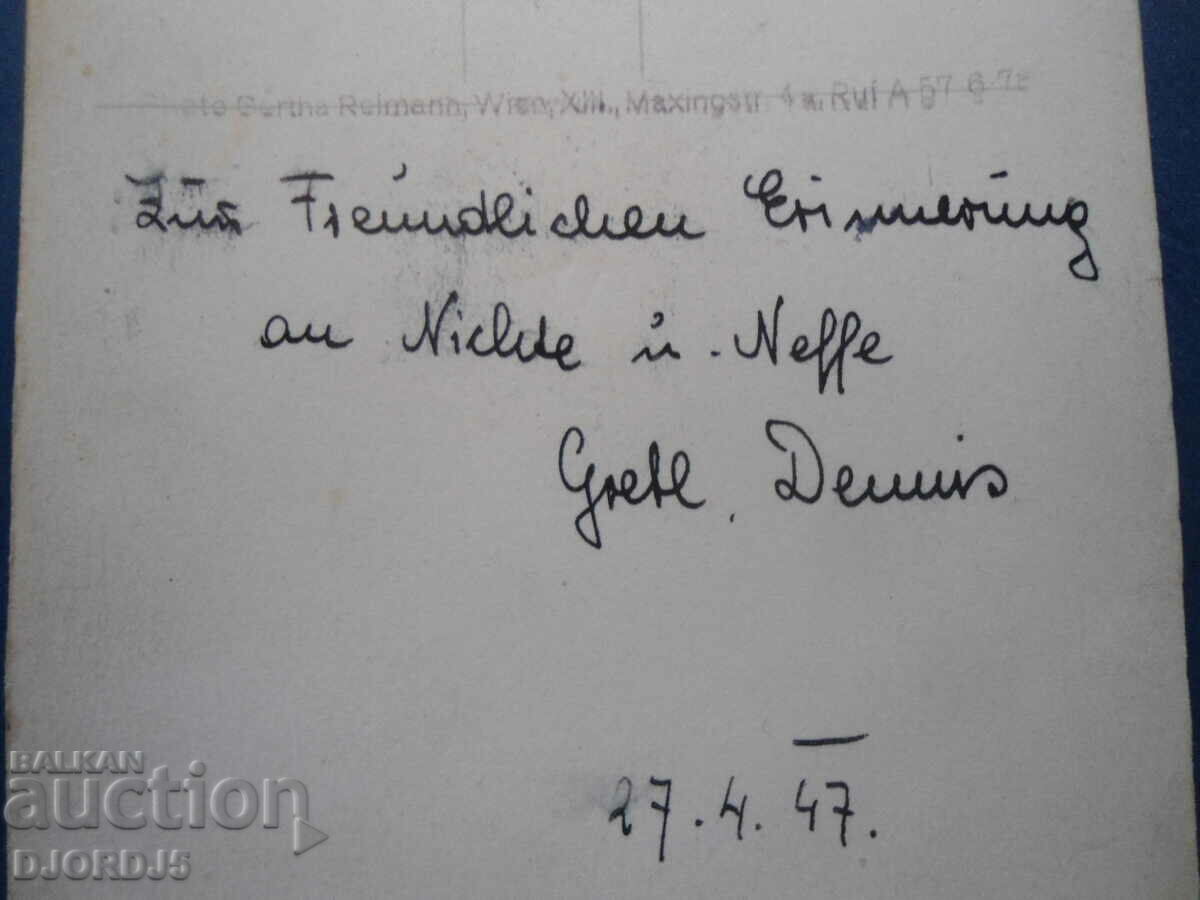 Bertha Reimann, Wien, XIII., Maxingstr. 4a. Ruf A
Zur Freundlichen Erinnerung
an Nichte u. Neffe
Gretl, Dennis
27.4.47.
BALKAN
auction
DJORDJ5